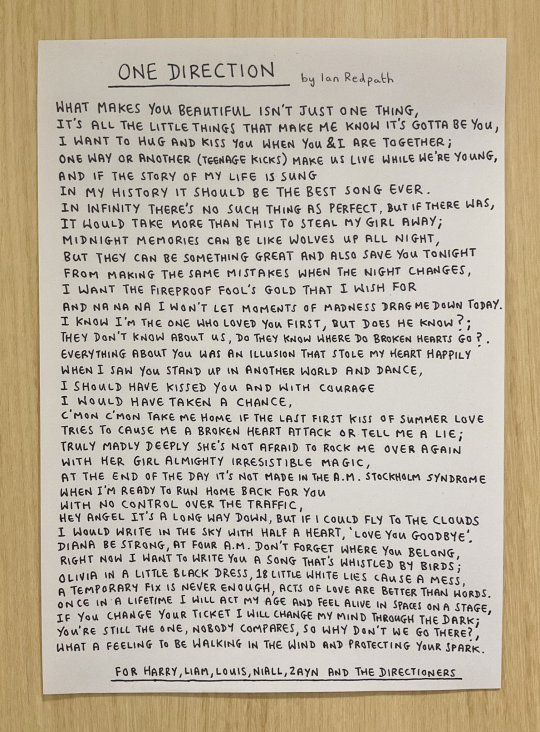 ONE DIRECTION by Ian Redpath
WHAT MAKES YOU BEAUTIFUL ISN'T JUST ONE THING,
IT'S ALL THE LITTLE THINGS THAT MAKE ME KNOW IT'S GOTTA BE YOU,
I WANT TO HUG AND KISS YOU WHEN YOU & I ARE TOGETHER;
ONE WAY OR ANOTHER (TEENAGE KICKS) MAKE US LIVE WHILE WE'RE YOUNG,
AND IF THE STORY OF MY LIFE IS SUNG
IN MY HISTORY IT SHOULD BE THE BEST SONG EVER.
IN INFINITY THERE'S NO SUCH THING AS PERFECT, BUT IF THERE WAS,
IT WOULD TAKE MORE THAN THIS TO STEAL MY GIRL AWAY;
MIDNIGHT MEMORIES CAN BE LIKE WOLVES UP ALL NIGHT,
BUT THEY CAN BE SOMETHING GREAT AND ALSO SAVE YOU TONIGHT
FROM MAKING THE SAME MISTAKES WHEN THE NIGHT CHANGES,
I WANT THE FIREPROOF FOOL'S GOLD THAT I WISH FOR
AND NA NA NA I WON'T LET MOMENTS OF MADNESS DRAG ME DOWN TODAY.
I KNOW I'M THE ONE WHO LOVED YOU FIRST, BUT DOES HE KNOW?;
THEY DON'T KNOW ABOUT US, DO THEY KNOW WHERE DO BROKEN HEARTS GO?.
EVERYTHING ABOUT YOU WAS AN ILLUSION THAT STOLE MY HEART HAPPILY
WHEN I SAW YOU STAND UP IN ANOTHER WORLD AND DANCE,
I SHOULD HAVE KISSED YOU AND WITH COURAGE
I WOULD HAVE TAKEN A CHANCE,
C'MON C'MON TAKE ME HOME IF THE LAST FIRST KISS OF SUMMER LOVE
TRIES TO CAUSE ME A BROKEN HEART ATTACK OR TELL ME A LIE;
TRULY MADLY DEEPLY SHE'S NOT AFRAID TO ROCK ME OVER AGAIN
WITH HER GIRL ALMIGHTY IRRESISTIBLE MAGIC,
AT THE END OF THE DAY IT'S NOT MADE IN THE A.M. STOCKHOLM SYNDROME
WHEN I'M READY TO RUN HOME BACK FOR YOU
WITH NO CONTROL OVER THE TRAFFIC,
HEY ANGEL IT'S A LONG WAY DOWN, BUT IF I COULD FLY TO THE CLOUDS
I WOULD WRITE IN THE SKY WITH HALF A HEART, 'LOVE YOU GOODBYE'.
DIANA BE STRONG, AT FOUR A.M. DON'T FORGET WHERE YOU BELONG,
RIGHT NOW I WANT TO WRITE YOU A SONG THAT'S WHISTLED BY BIRDS;
OLIVIA IN A LITTLE BLACK DRESS, 18 LITTLE WHITE LIES CAUSE A MESS,
A TEMPORARY FIX IS NEVER ENOUGH, ACTS OF LOVE ARE BETTER THAN WORDS.
ONCE IN A LIFETIME I WILL ACT MY AGE AND FEEL ALIVE IN SPACES ON A STAGE,
IF YOU CHANGE YOUR TICKET I WILL CHANGE MY MIND THROUGH THE DARK;
YOU'RE STILL THE ONE, NOBODY COMPARES, SO WHY DON'T WE GO THERE?,
WHAT A FEELING TO BE WALKING IN THE WIND AND PROTECTING YOUR SPARK.
FOR HARRY, LIAM, LOUIS, NIALL, ZAYN AND THE DIRECTIONERS